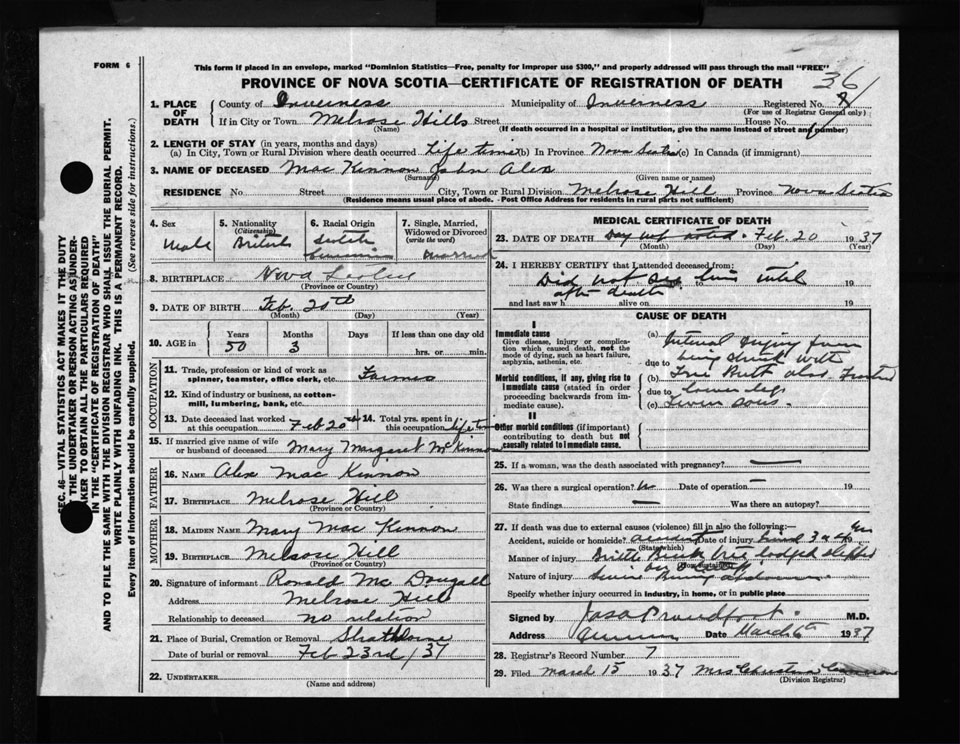 FORM 6
This form if placed in an envelope, marked "Dominion Statistics—Free, penalty for improper use $300," and properly addressed will pass through the mail "FREE"
PROVINCE OF NOVA SCOTIA—CERTIFICATE OF REGISTRATION OF DEATH
36
1. PLACE OF DEATH County of Inverness Municipality of Inverness Registered No. 8
(For use of Registrar General only)
If in City or Town Melrose Hills Street House No.
(Name) (If death occurred in a hospital or institution, give the name instead of street and number)
2. LENGTH OF STAY (in years, months and days)
(a) In City, Town or Rural Division where death occurred Life time (b) In Province Nova Scotia (c) In Canada (if immigrant)
3. NAME OF DECEASED Mac Kinnon John Alex
(Surname) (Given name or names)
RESIDENCE No. Street City, Town or Rural Division Melrose Hill Province Nova Scotia
(Residence means usual place of abode. - Post Office Address for residents in rural parts not sufficient)
4. Sex Male
5. Nationality (Citizenship) British
6. Racial Origin Scotch
7. Single, Married, Widowed or Divorced (write the word) Married
8. BIRTHPLACE Nova Scotia
(Province or Country)
9. DATE OF BIRTH Feb. 20th
(Month) (Day) (Year)
10. AGE in Years 50 Months 3 Days If less than one day old hrs. or min.
OCCUPATION
11. Trade, profession or kind of work as spinner, teamster, office clerk, etc. Farmer
12. Kind of industry or business, as cotton-mill, lumbering, bank, etc.
13. Date deceased last worked at this occupation Feb 20
14. Total yrs. spent in this occupation life time
15. If married give name of wife or husband of deceased Mary Margaret McKinnon
FATHER
16. NAME Alex Mac Kinnon
17. BIRTHPLACE Melrose Hill
(Province or Country)
MOTHER
18. MAIDEN NAME Mary Mac Kinnon
19. BIRTHPLACE Melrose Hill
(Province or Country)
20. Signature of informant Ronald Mc Dougall
Address Melrose Hill
Relationship to deceased no relation
21. Place of Burial, Cremation or Removal Strathlorne
Date of burial or removal Feb 23rd / 37
22. UNDERTAKER
(Name and address)
MEDICAL CERTIFICATE OF DEATH
23. DATE OF DEATH Day not noted. Feb. 20 1937
(Month) (Day) (Year)
24. I HEREBY CERTIFY that I attended deceased from:
Did not see him until 19
to
after death
and last saw h alive on 19
CAUSE OF DEATH
I
Immediate cause
Give disease, injury or complication which caused death, not the mode of dying, such as heart failure, asphyxia, asthenia, etc.
Morbid conditions, if any, giving rise to immediate cause (stated in order proceeding backwards from immediate cause).
II
Other morbid conditions (if important) contributing to death but not causally related to immediate cause.
(a) Internal injury from
due to being struck with
(b) Tree Butt also
due to lower leg
(c)
25. If a woman, was the death associated with pregnancy? —
26. Was there a surgical operation? no Date of operation — 19
State findings — Was there an autopsy?
27. If death was due to external causes (violence) fill in also the following:—
Accident, suicide or homicide? accident Date of injury
(State which)
Manner of injury
Nature of injury Severe
Specify whether injury occurred in industry, in home, or in public place
Signed by Jas A Proudfoot M.D.
Address Date March 6th 1937
28. Registrar's Record Number 7
29. Filed March 15 1937 Mrs Christina
(Division Registrar)
SEC. 46—VITAL STATISTICS ACT MAKES IT THE DUTY OF THE UNDERTAKER OR PERSON ACTING AS UNDERTAKER TO OBTAIN ALL THE PARTICULARS REQUIRED IN THE "CERTIFICATE OF REGISTRATION OF DEATH"
AND TO FILE THE SAME WITH THE DIVISION REGISTRAR WHO SHALL ISSUE THE BURIAL PERMIT.
WRITE PLAINLY WITH UNFADING INK. THIS IS A PERMANENT RECORD.
Every item of information should be carefully supplied. (See reverse side for instructions.)